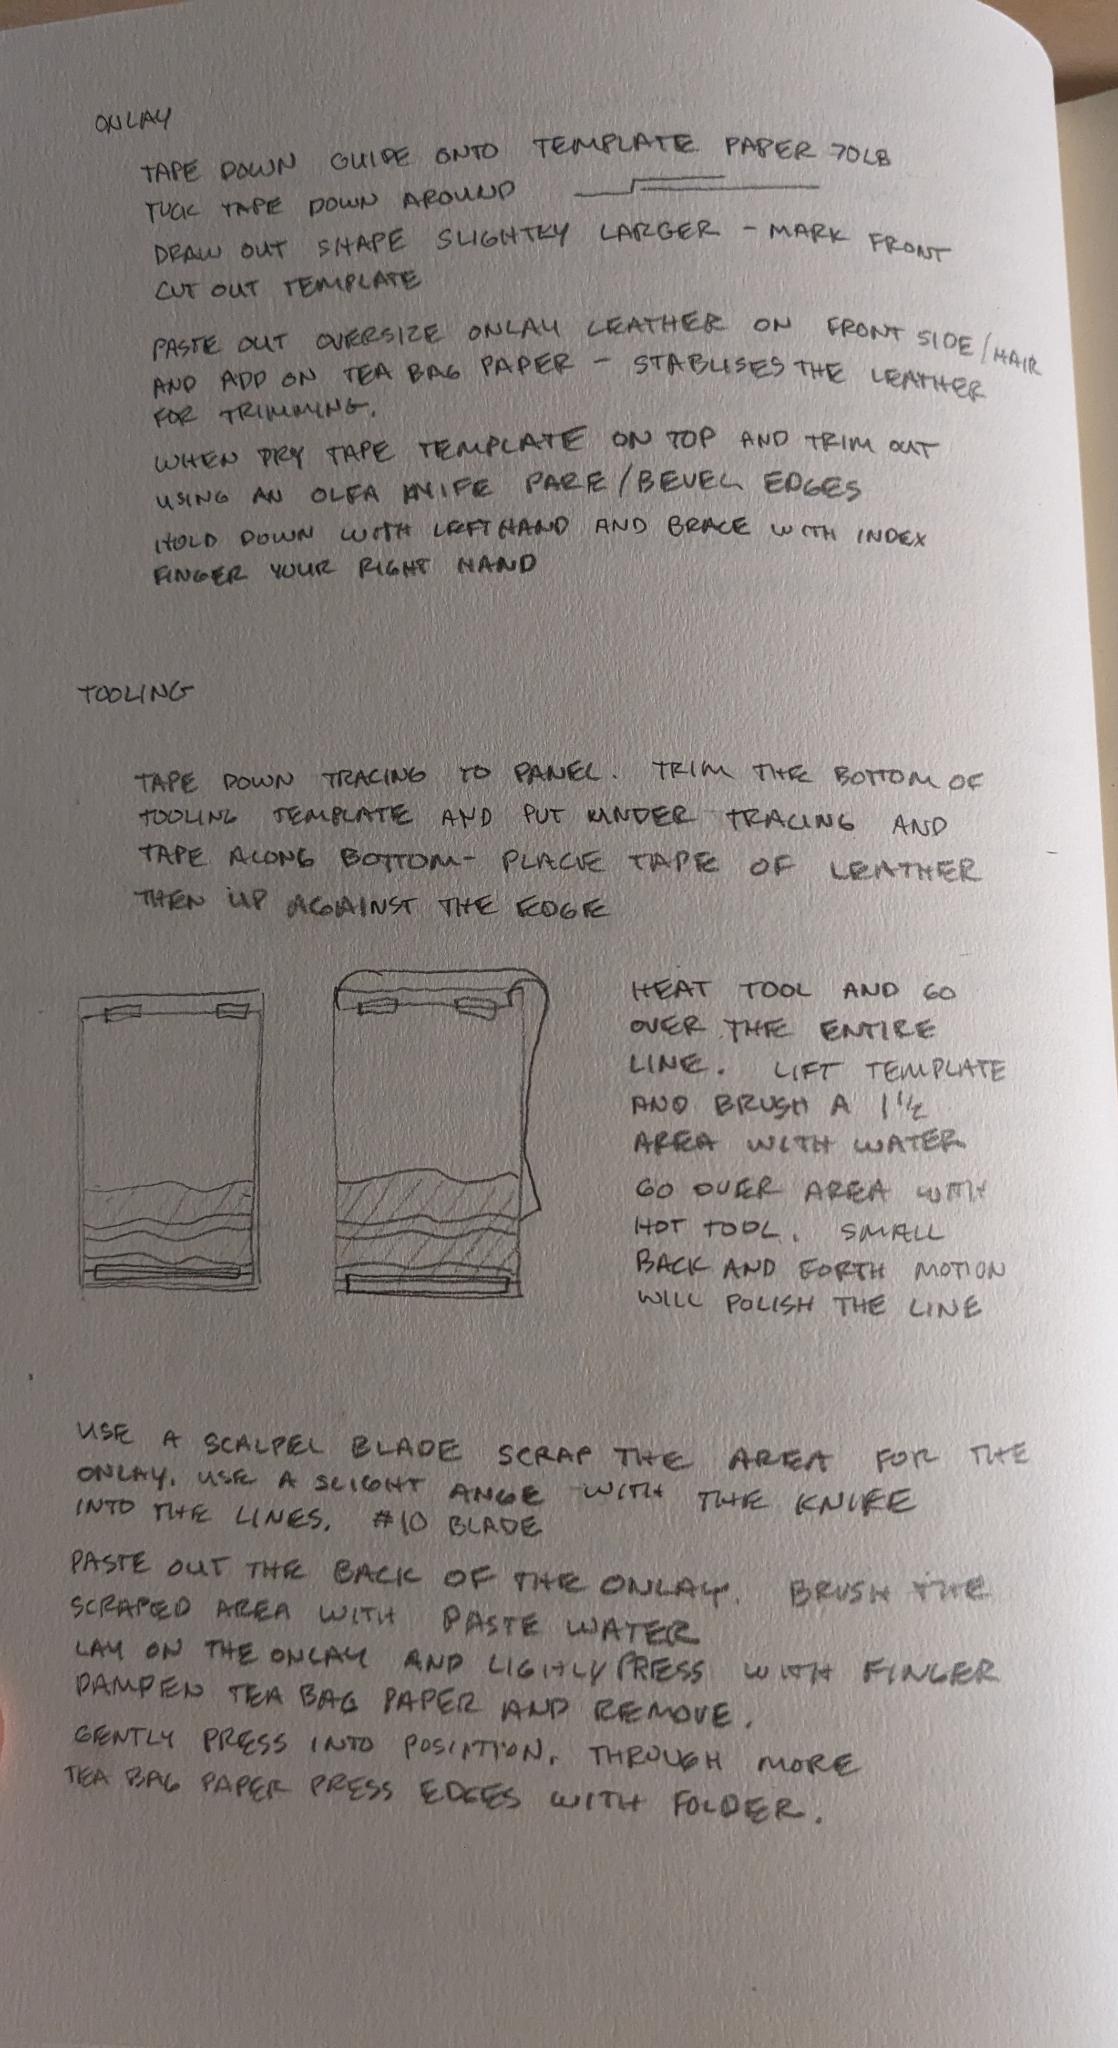 ONLAY
TAPE DOWN GUIDE ONTO TEMPLATE PAPER 70LB
TUCK TAPE DOWN AROUND
DRAW OUT SHAPE SLIGHTLY LARGER - MARK FRONT
CUT OUT TEMPLATE
PASTE OUT OVERSIZE ONLAY LEATHER ON FRONT SIDE/HAIR
AND ADD ON TEA BAG PAPER - STABLISES THE LEATHER
FOR TRIMMING.
WHEN DRY TAPE TEMPLATE ON TOP AND TRIM OUT
USING AN OLFA KNIFE PARE/BEVEL EDGES
HOLD DOWN WITH LEFT HAND AND BRACE WITH INDEX
FINGER YOUR RIGHT HAND
TOOLING
TAPE DOWN TRACING TO PANEL. TRIM THE BOTTOM OF
TOOLING TEMPLATE AND PUT UNDER TRACING AND
TAPE ALONG BOTTOM- PLACE TAPE OF LEATHER
THEN UP AGAINST THE EDGE
HEAT TOOL AND GO
OVER THE ENTIRE
LINE. LIFT TEMPLATE
AND BRUSH A 1 1/2
AREA WITH WATER
GO OVER AREA WITH
HOT TOOL. SMALL
BACK AND FORTH MOTION
WILL POLISH THE LINE
USE A SCALPEL BLADE SCRAP THE AREA FOR THE
ONLAY. USE A SLIGHT ANGE WITH THE KNIFE
INTO THE LINES. #10 BLADE
PASTE OUT THE BACK OF THE ONLAY. BRUSH THE
SCRAPED AREA WITH PASTE WATER
LAY ON THE ONLAY AND LIGHLY PRESS WITH FINGER
DAMPEN TEA BAG PAPER AND REMOVE.
GENTLY PRESS INTO POSITION. THROUGH MORE
TEA BAG PAPER PRESS EDGES WITH FOLDER.